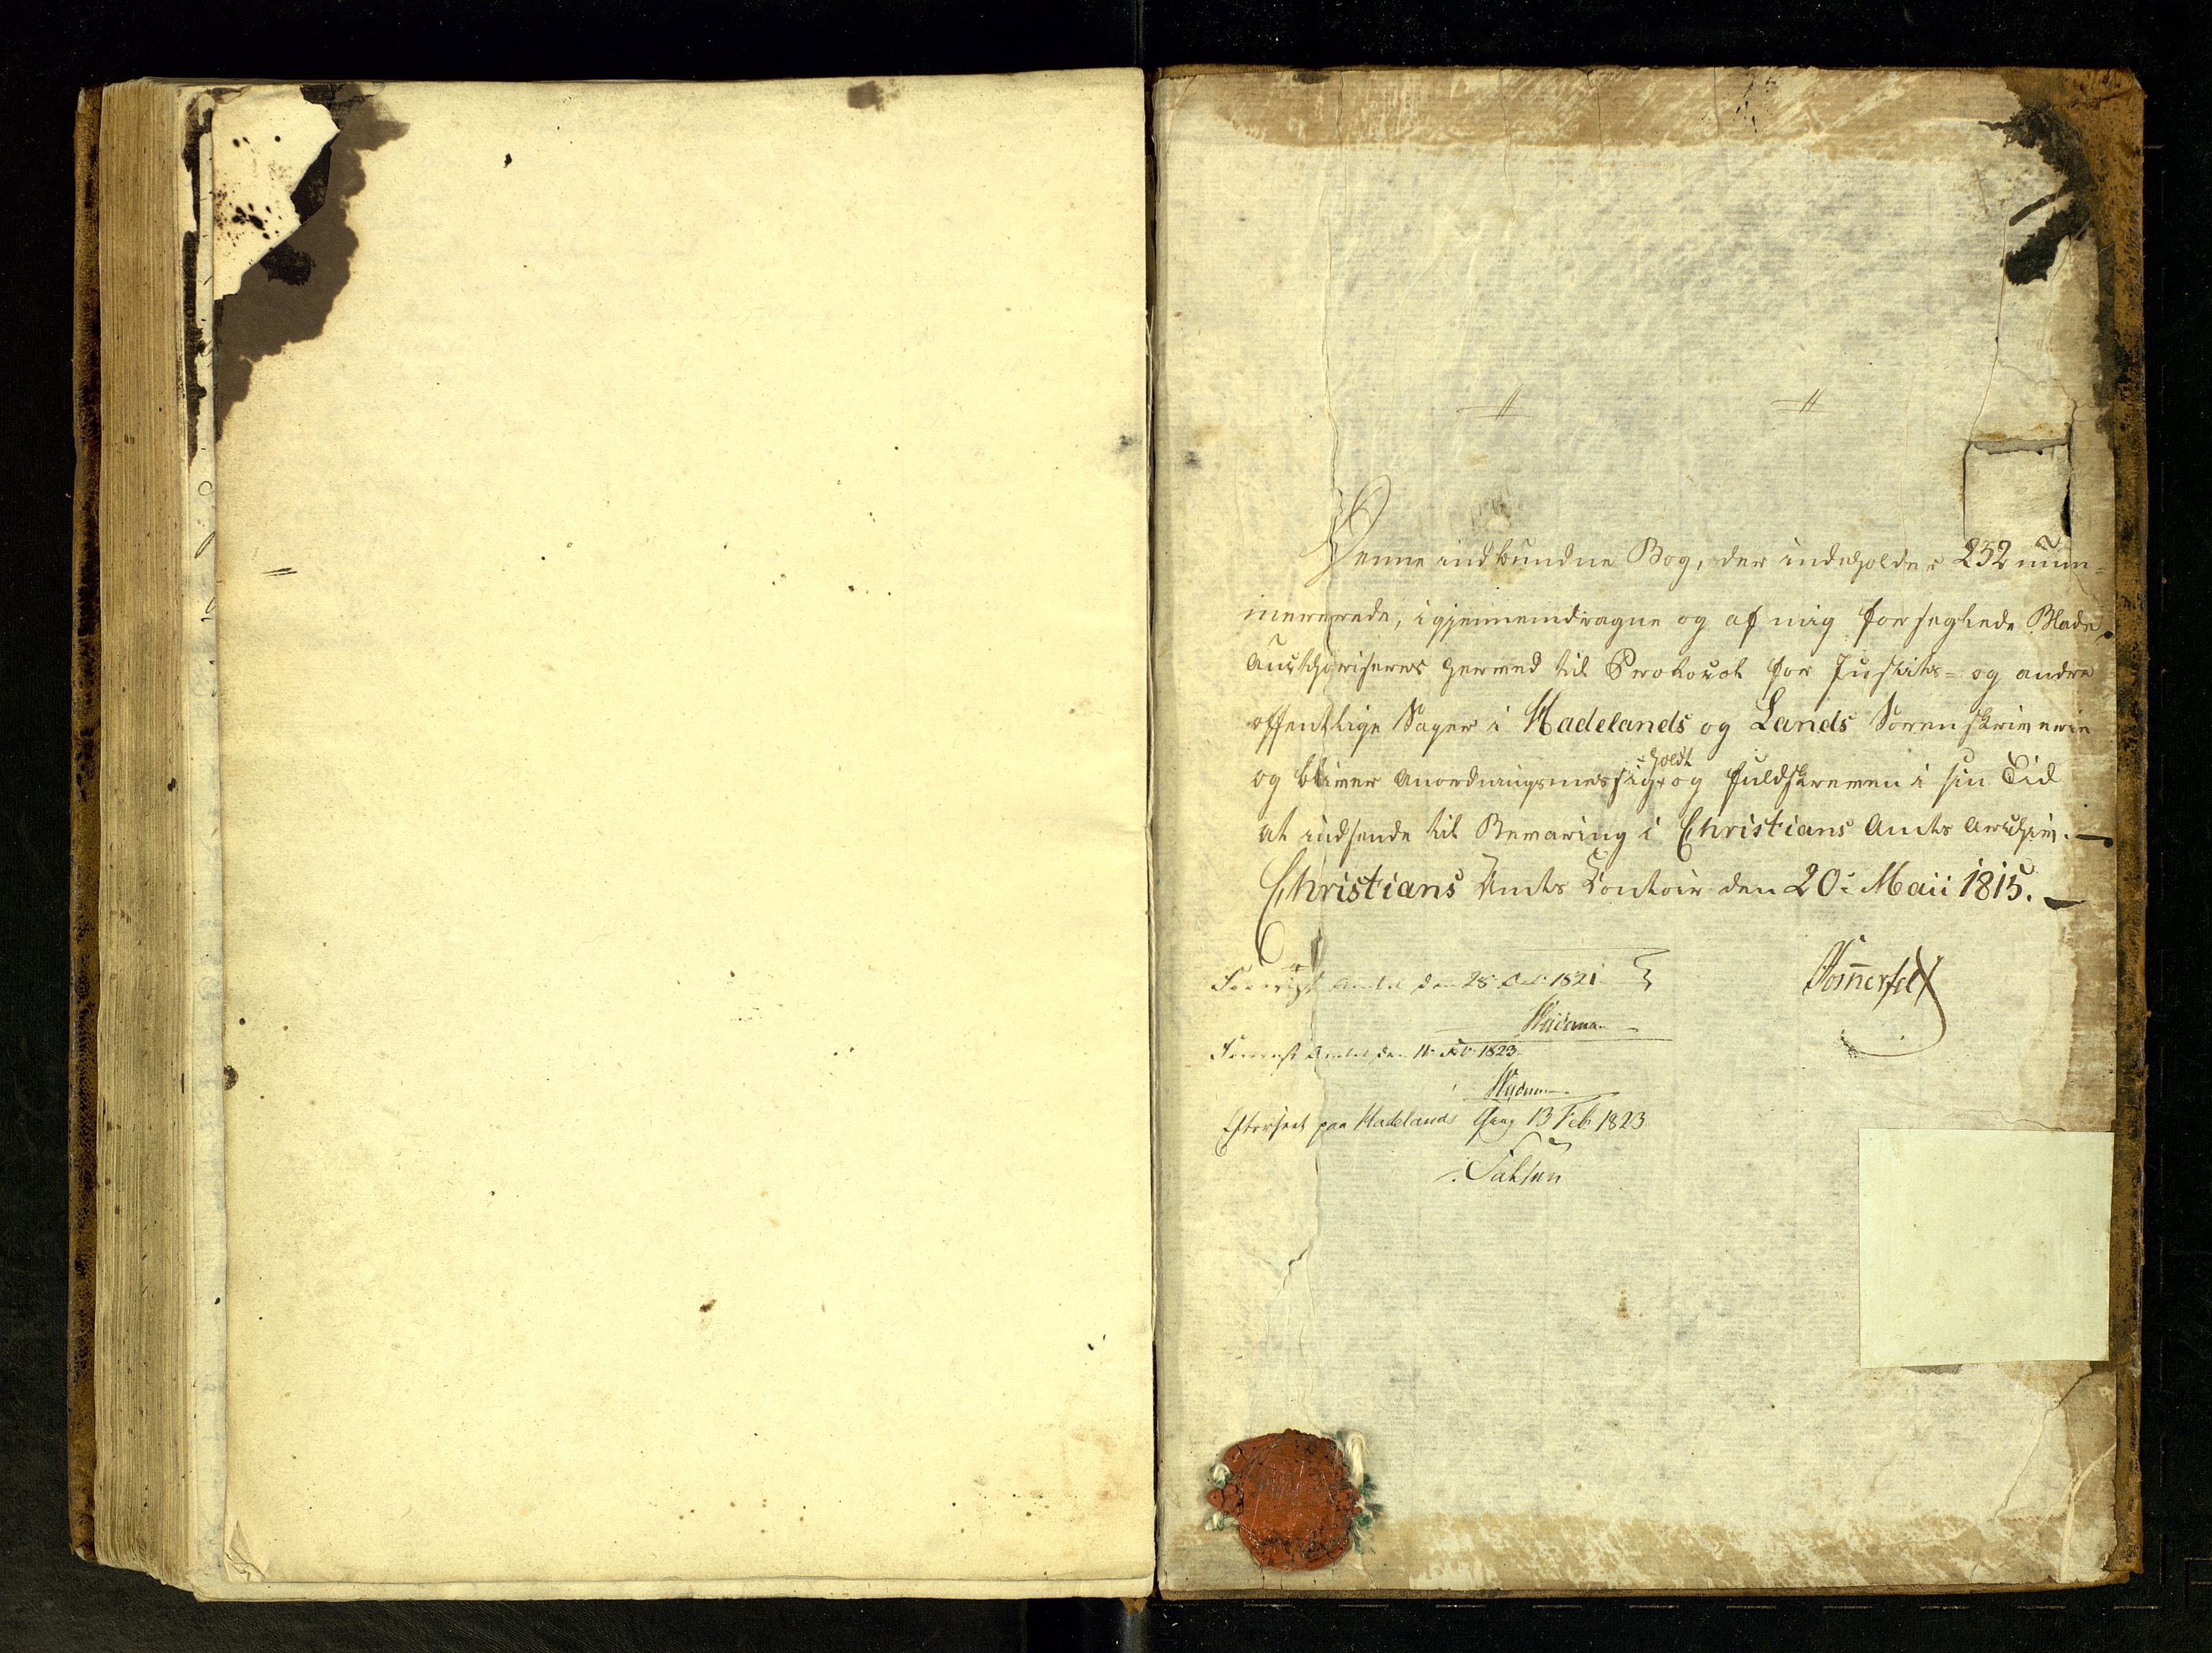 Denne indbundne Bog, der indeholder 252 num-
mererede, igjennemdragne og af mig forseglede Blade,
Authoriseres hermed til Protocol for Justits- og andre
offentlige Sager i Hadelands og Lands Sorenskriverie
og bliver Anordningsmessig holdt og fuldskreven i sin Tid
at indsende til Bevaring i Christians Amts Archiv.
Christians Amts Contoir den 20de Maii 1815.
Sommerfeldt
Foreviist Amtet den 28 1821
Foreviist Amtet den 11 Feb. 1823
Efterseet paa Hadelands 13 Feb 1823